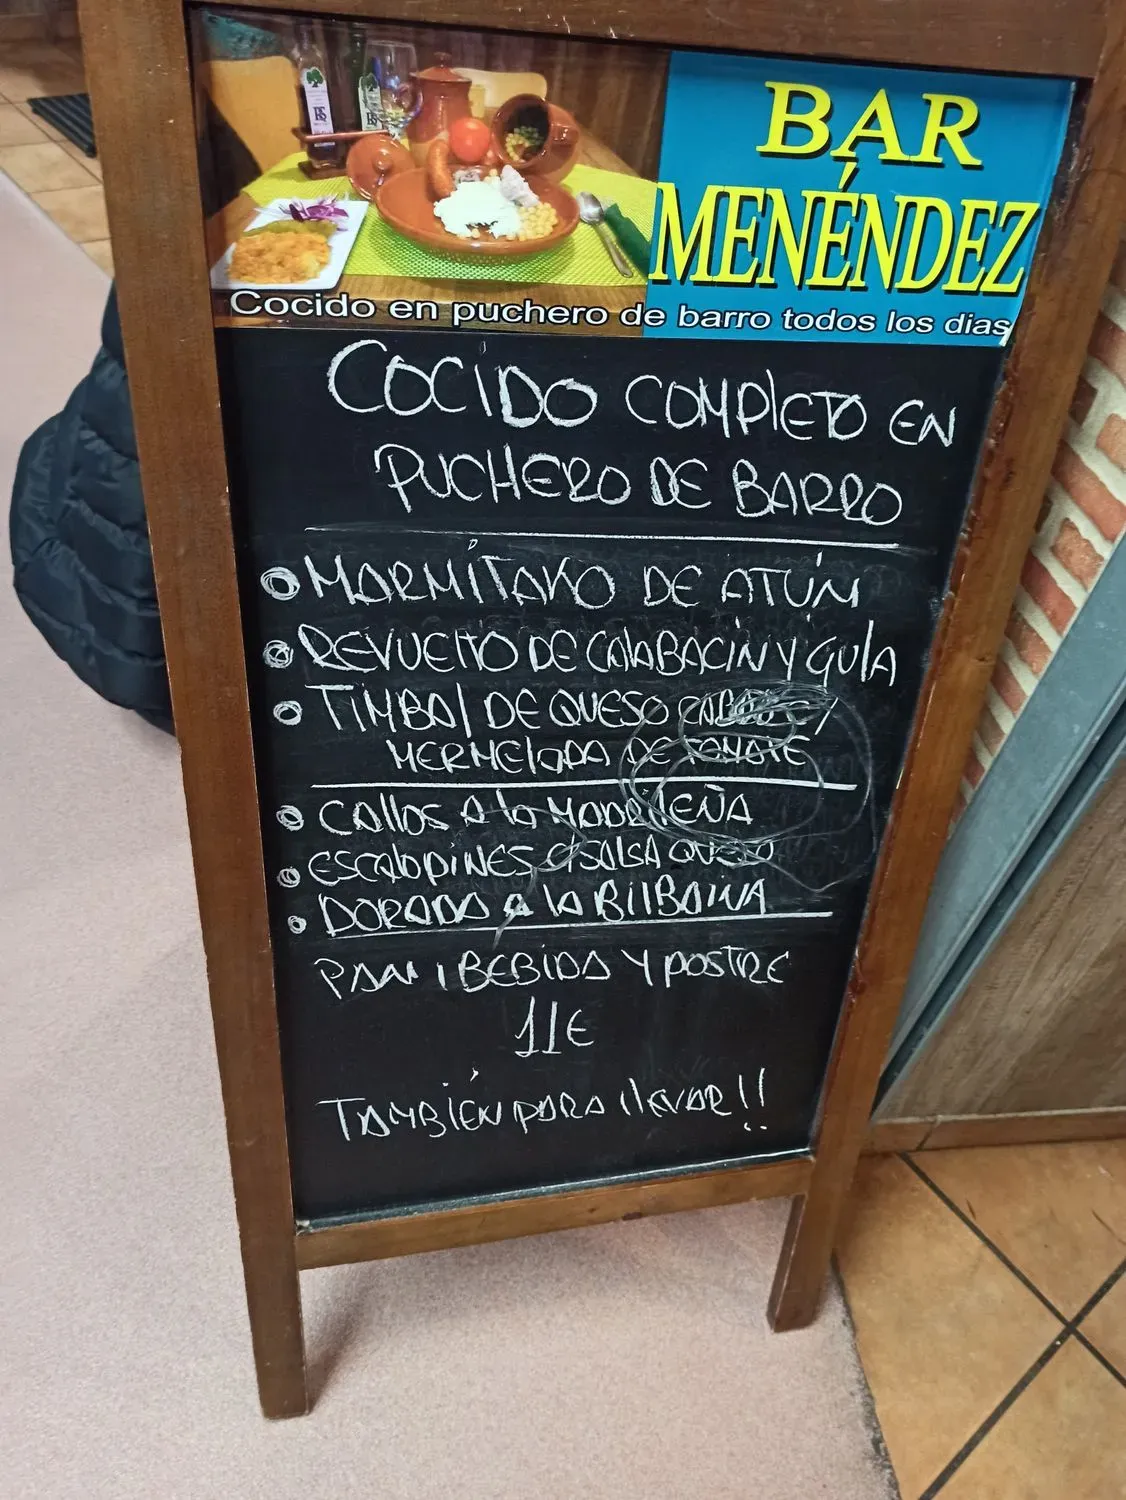 BAR
MENÉNDEZ
Cocido en puchero de barro todos los dias
COCIDO COMPLETO EN
PUCHERO DE BARRO
MARMÍTAKO DE ATÚN
REVUELTO DE CALABACIN Y GULA
TIMBAL DE QUESO CABRA Y
MERMELADA DE TOMATE
CALLOS A LA MADRILEÑA
ESCALOPINES SALSA QUESO
DORADA A LA BILBAINA
PAN, BEBIDA Y POSTRE
11€
TAMBIÉN PARA LLEVAR!!